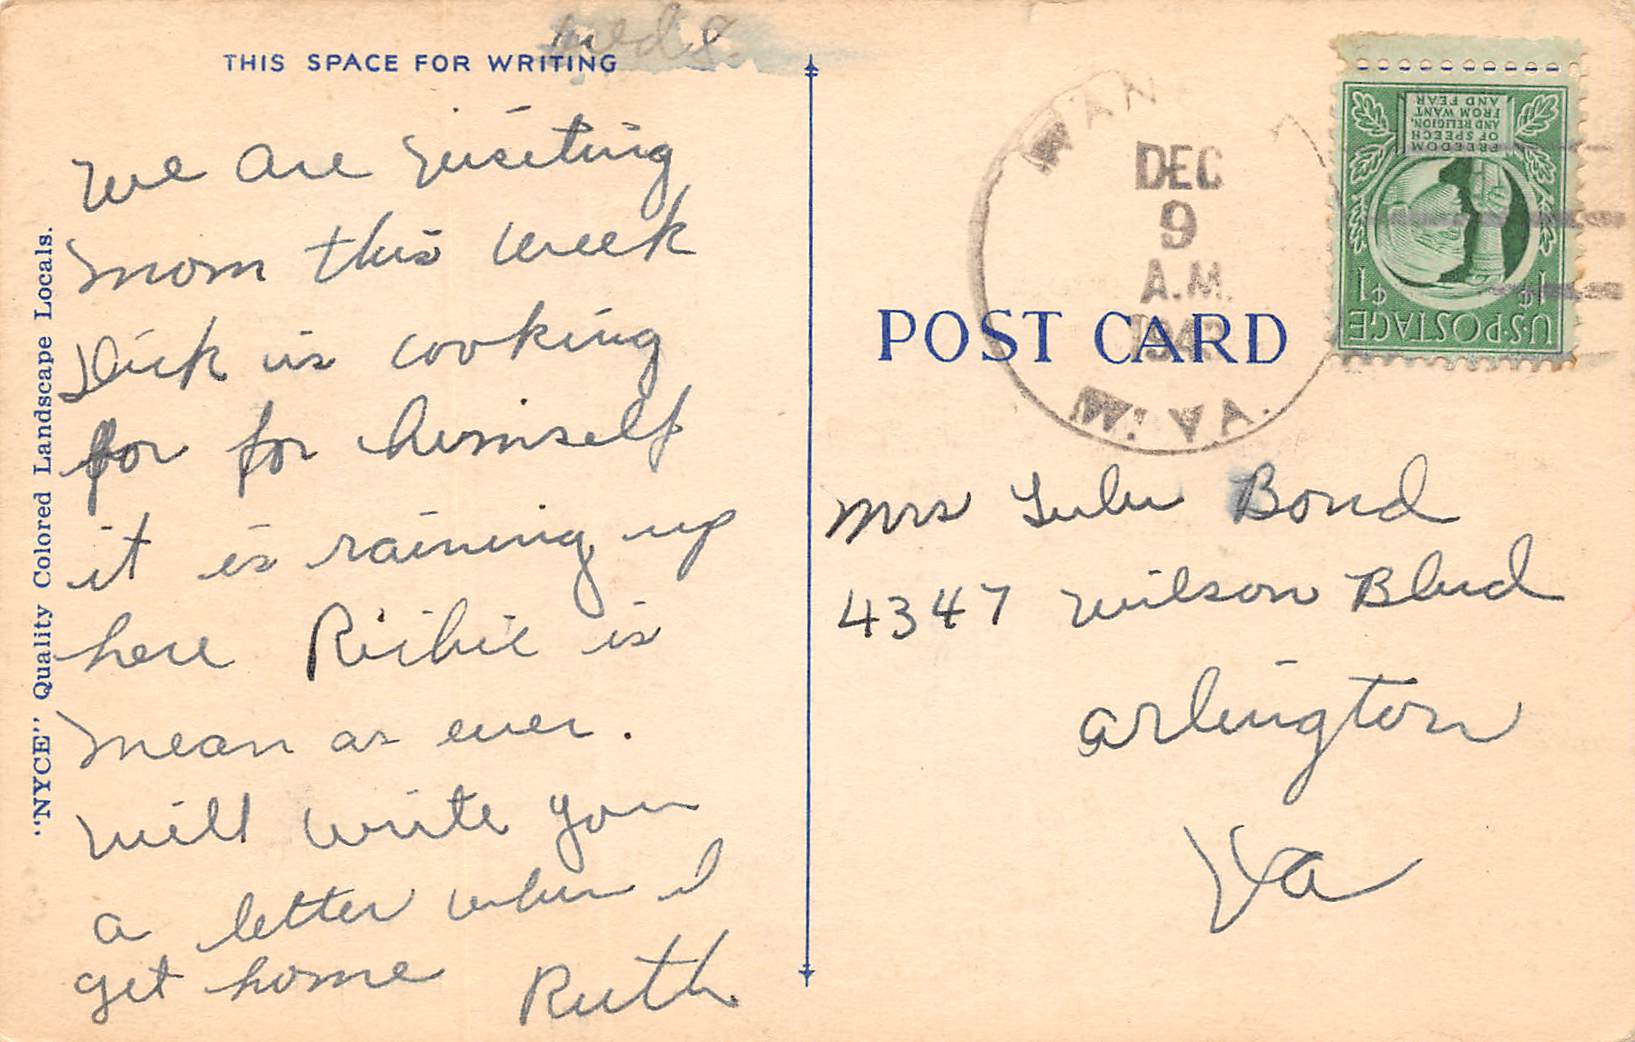 Wed 8.
THIS SPACE FOR WRITING
We are visiting
mom this week
Dick is cooking
for for himself
it is raining up
here Richie is
mean as ever.
will write you
a letter when I
get home Ruth
"NYCE" Quality Colored Landscape Locals.
DEC
9
A.M.
1943
W. VA.
U.S. POSTAGE
1¢ 1¢
FREEDOM
OF SPEECH
AND RELIGION,
FROM WANT
AND FEAR
POST CARD
Mrs Lulu Bond
4347 Wilson Blvd
Arlington
Va